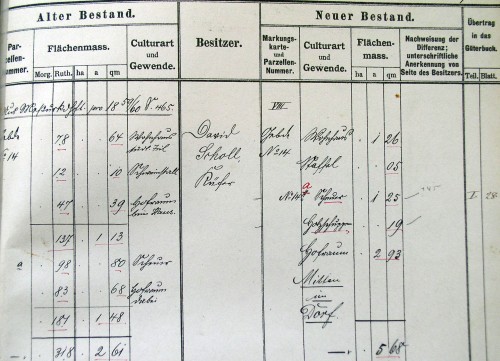 Alter Bestand.
Neuer Bestand.
Parzellen-Nummer.
Flächenmass.
Morg. Ruth. ha a qm
Culturart und Gewende.
Besitzer.
Markungskarte und Parzellen-Nummer.
Culturart und Gewende.
Flächenmass.
ha a qm
Nachweisung der Differenz; unterschriftliche Anerkennung von Seite des Besitzers.
Übertrag in das Güterbuch.
Teil. Blatt.
1859/60 S. 465
VIII
Gebde 78 64 Wohnhaus David Gebde Wohnhaus 1 26
No 14 Scholl, No 14 Staffel 05
12 10 Schweinstall Küfer
47 39 Hofraum No 14a Scheuer 1 25 I 28
Holzschuppen 19
137 1 13 Hofraum 2 93
a 98 80 Scheuer Mitten
83 68 Hofraum im
dabei Dorf
181 1 48
318 2 61 5 68